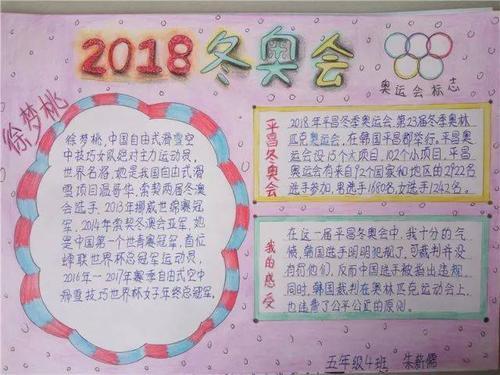 2018冬奥会
奥运会标志
徐梦桃
徐梦桃,中国自由式滑雪空
中技巧女队绝对主力运动员,
世界名将,她是我国自由式滑
雪项目温哥华,索契两届冬奥
会选手,2013年挪威世锦赛冠
军,2014年索契冬奥会亚军,她
是中国第一个世青赛冠军,首位
蝉联世界杯总冠军运动员,
2016年-2017年赛季自由式空中
滑雪技巧世界杯女子年终总冠军。
平昌冬奥会
2018年平昌冬季奥运会,第23届冬季奥林
匹克奥运会,在韩国平昌郡举行。平昌奥
运会设15个大项目,102个小项目,平昌
奥运会共有来自92个国家和地区的2922名
选手参加,男选手1680名,女选手1242名。
我的感受
在这一届平昌冬奥会中,我十分的气
愤,韩国选手明明犯规了,可裁判并没
有罚他们,反而中国选手被指出违规,
同时,韩国裁判在奥林匹克运动会上,
也违背了公平公正的原则。
五年级4班 朱蔚儒